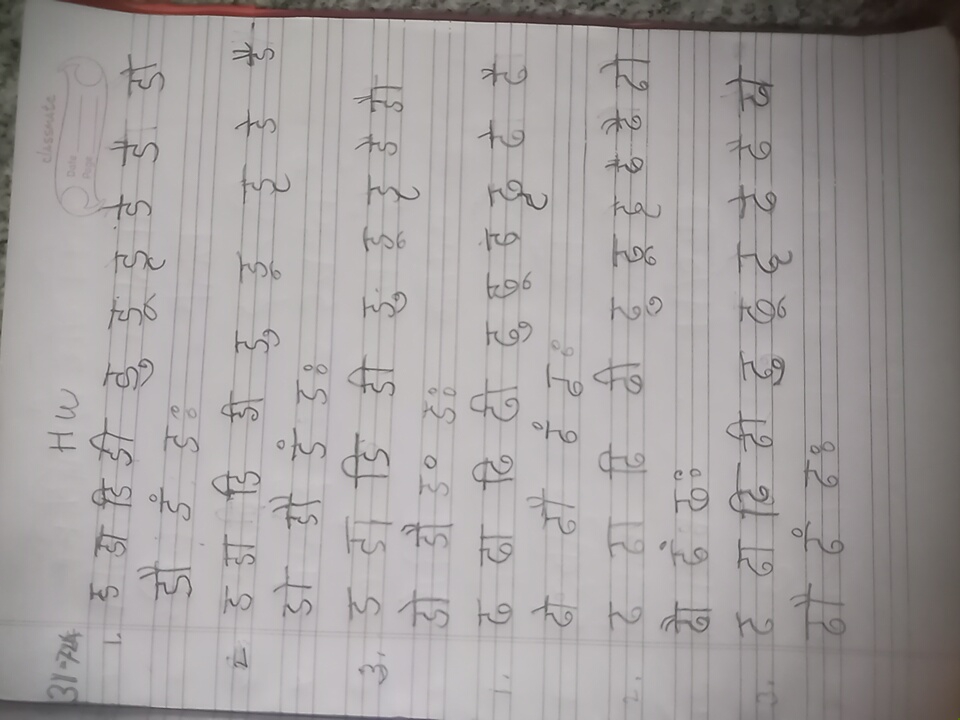 31-7-24
HW
classmate
Date
Page
1. ड डा डि डी डु डू डृ डे डै डो
डौ डं डः
2. ड डा डि डी डु डू डृ डे डै
डो डौ डं डः
3. ड डा डि डी डु डू डृ डे डै
डो डौ डं डः
1. ढ ढा ढि ढी ढु ढू ढ ढृ ढे ढै
ढो ढौ ढं ढः
2. ढ ढा ढि ढी ढु ढू ढृ ढे ढै ढो
ढौ ढं ढः
3. ढ ढा ढि ढी ढु ढू ढृ ढे ढै ढो
ढौ ढं ढः